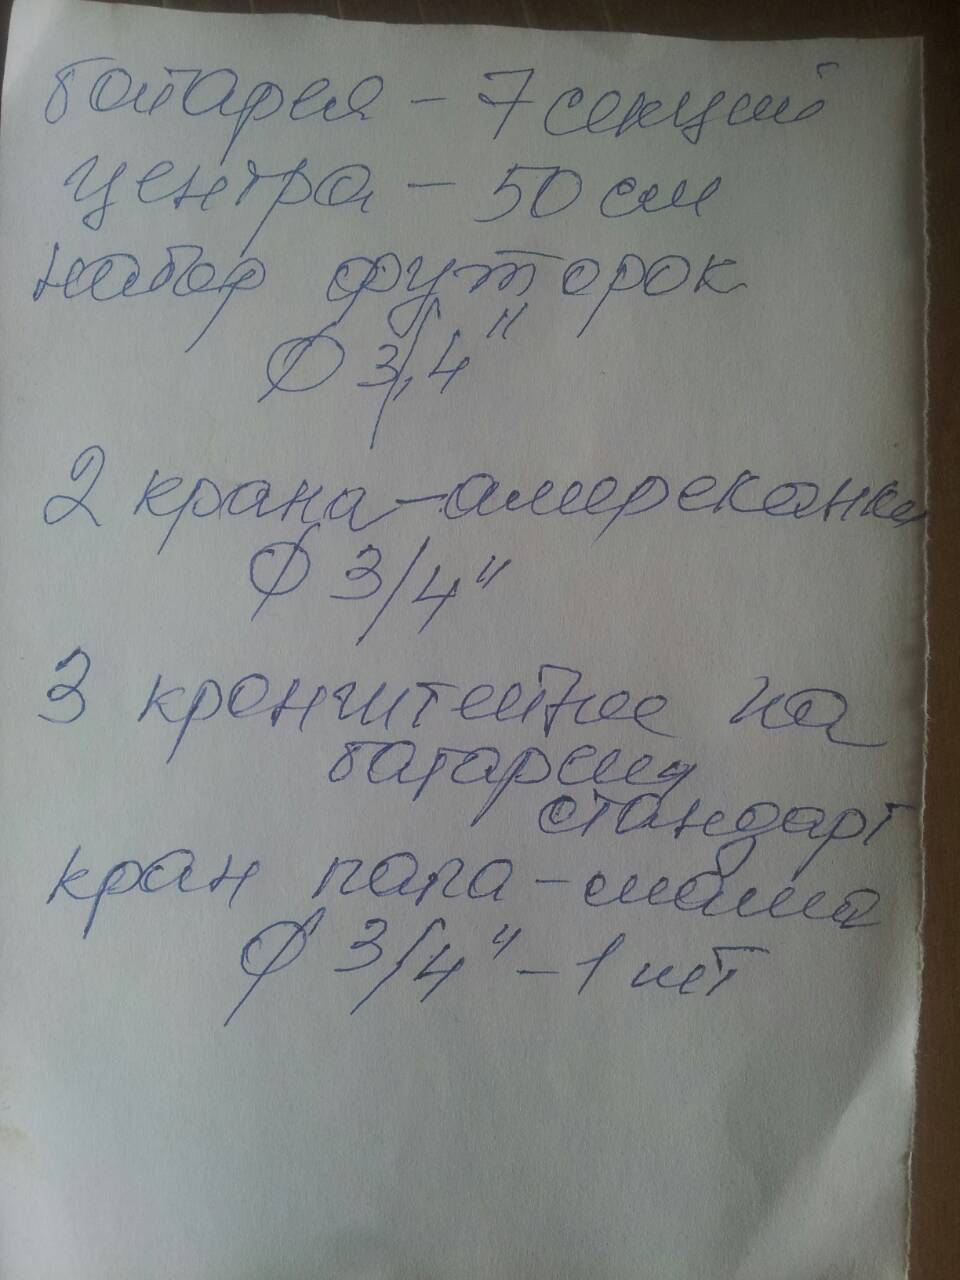 батарея – 7 секций
центра – 50 см
набор футорок
Ø 3/4"
2 крана – американка
Ø 3/4"
3 кронштейна на
батарею
стандарт
кран папа – мама
Ø 3/4" – 1 шт